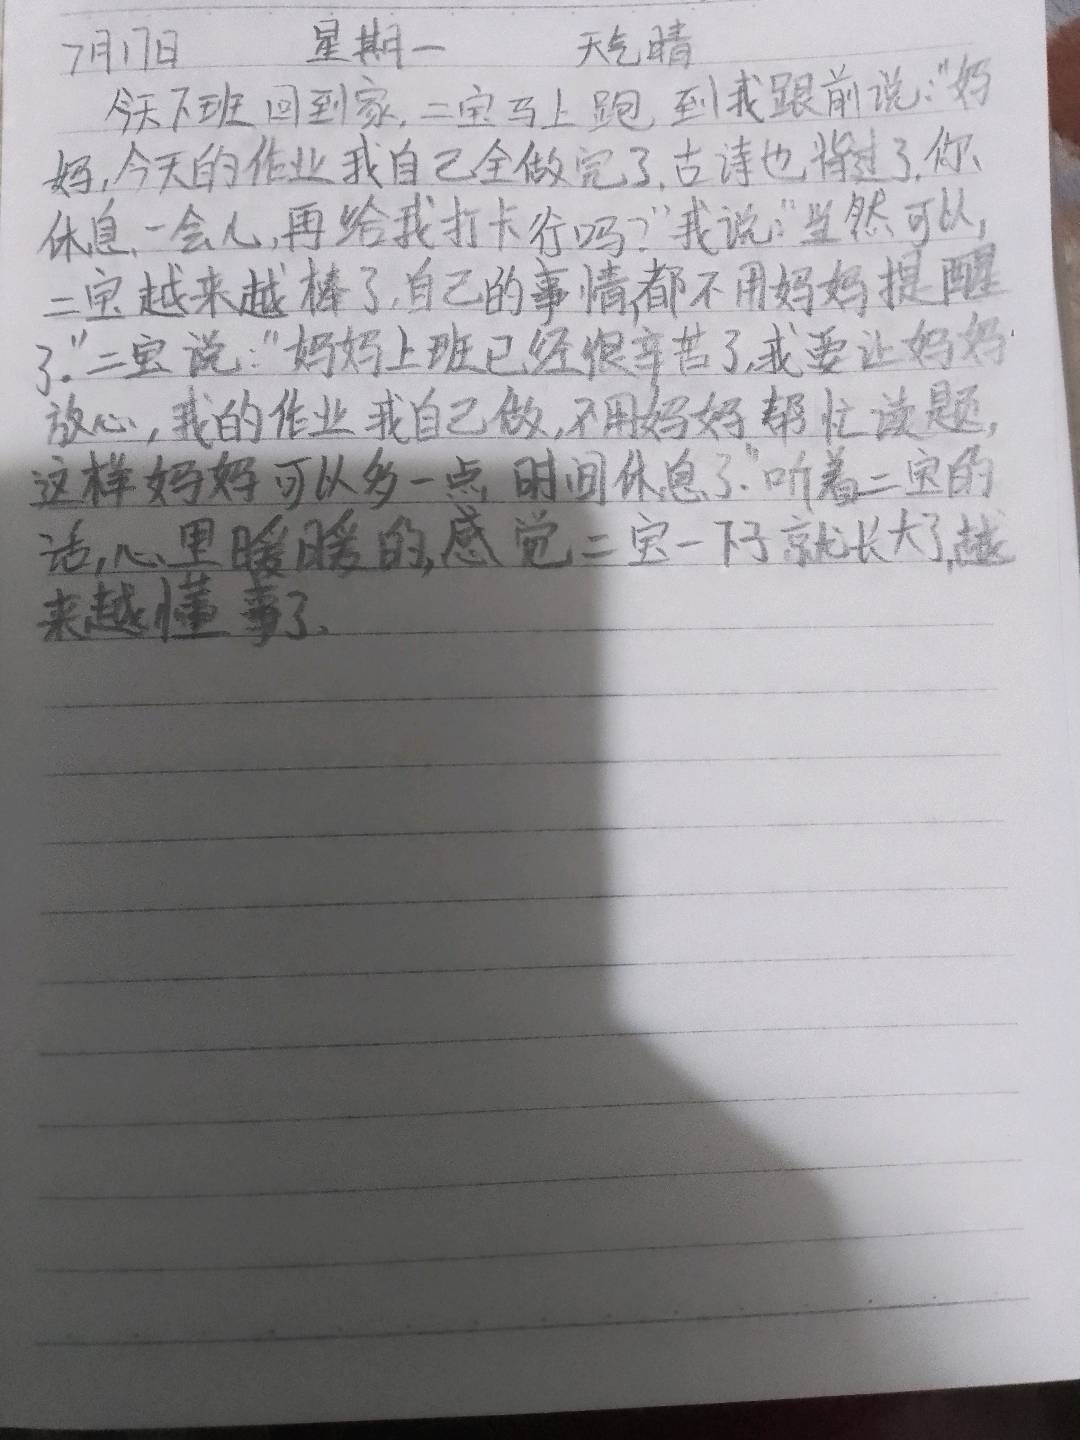 7月17日 星期一 天气晴
今天下班回到家,二宝马上跑到我跟前说:"妈
妈,今天的作业我自己全做完了,古诗也背过了,你
休息一会儿,再给我打卡行吗?"我说:"当然可以,
二宝越来越棒了,自己的事情都不用妈妈提醒
了."二宝说:"妈妈上班已经很辛苦了,我要让妈妈
放心,我的作业我自己做,不用妈妈帮忙读题,
这样妈妈可以多一点时间休息了."听着二宝的
话,心里暖暖的,感觉二宝一下子就长大了,越
来越懂事了.